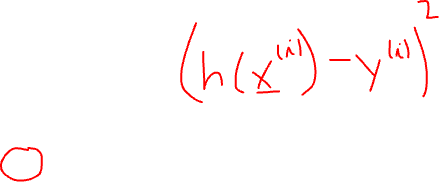 (h(x̲^(i)) - y^(i))^2